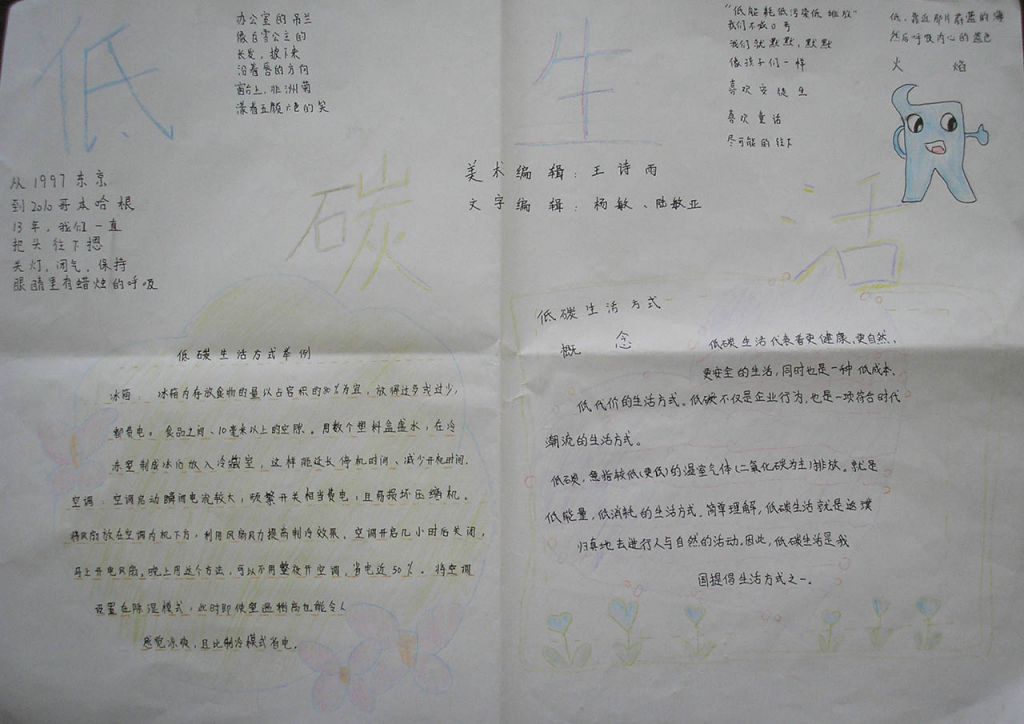 低
碳
生
活
办公室的吊兰
像白雪公主的
长发，披下来
沿着唇的方向
窗台上，非洲菊
漾着五颜六色的笑
从1997东京
到2010哥本哈根
13年，我们一直
把头往下摁
关灯，闭气，保持
眼睛里有蜡烛的呼吸
"低能耗低污染低排放"
我们不喊口号
我们就默默，默默
像孩子们一样
喜欢安徒生
喜欢童话
尽可能的往下
低，靠近那片蔚蓝的海
然后呼吸内心的蓝色
火焰
美术编辑：王诗雨
文字编辑：杨敏、陆敏亚
低碳生活方式举例
冰箱：冰箱内存放食物的量以占容积的80%为宜，放得过多或过少，
都费电。食品之间、10毫米以上的空隙。用数个塑料盒盛水，在冷
冻室制成冰后放入冷藏室，这样能延长停机时间、减少开机时间。
空调：空调启动瞬间电流较大，频繁开关相当费电，且易损坏压缩机。
将风扇放在空调内机下方，利用风扇风力提高制冷效果。空调开启几小时后关闭，
马上开电风扇。晚上用这个方法，可以不用整夜开空调，省电近50%。将空调
设置在除湿模式，此时即使室温稍高也能令人
感觉凉爽，且比制冷模式省电。
低碳生活方式
概念
低碳生活代表着更健康、更自然、
更安全的生活，同时也是一种低成本、
低代价的生活方式。低碳不仅是企业行为，也是一项符合时代
潮流的生活方式。
低碳，意指较低(更低)的温室气体(二氧化碳为主)排放。就是
低能量，低消耗的生活方式。简单理解，低碳生活就是返璞
归真地去进行人与自然的活动。因此，低碳生活是我
国提倡生活方式之一。